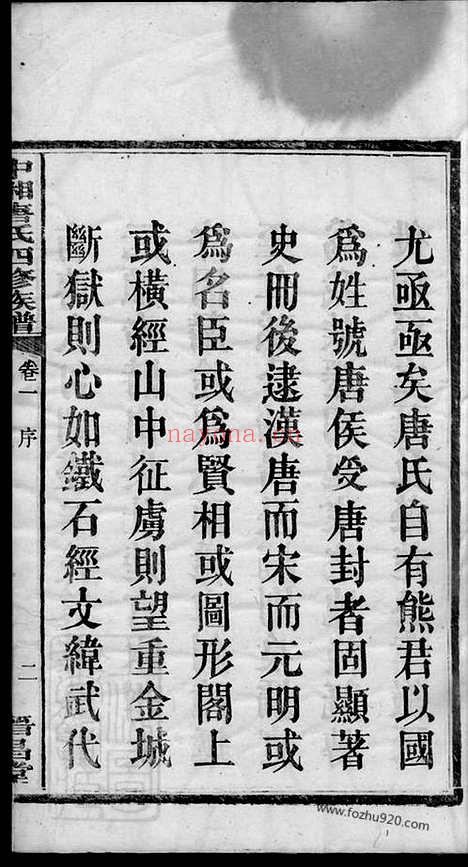 尤亟亟矣唐氏自有熊君以國
爲姓號唐侯受唐封者固顯著
史冊後逮漢唐而宋而元明或
爲名臣或爲賢相或圖形閣上
或橫經山中征虜則望重金城
斷獄則心如鐵石經文緯武代
中湘唐氏四修族譜
卷一 序
二
晉昌堂
www.fozhu920.com